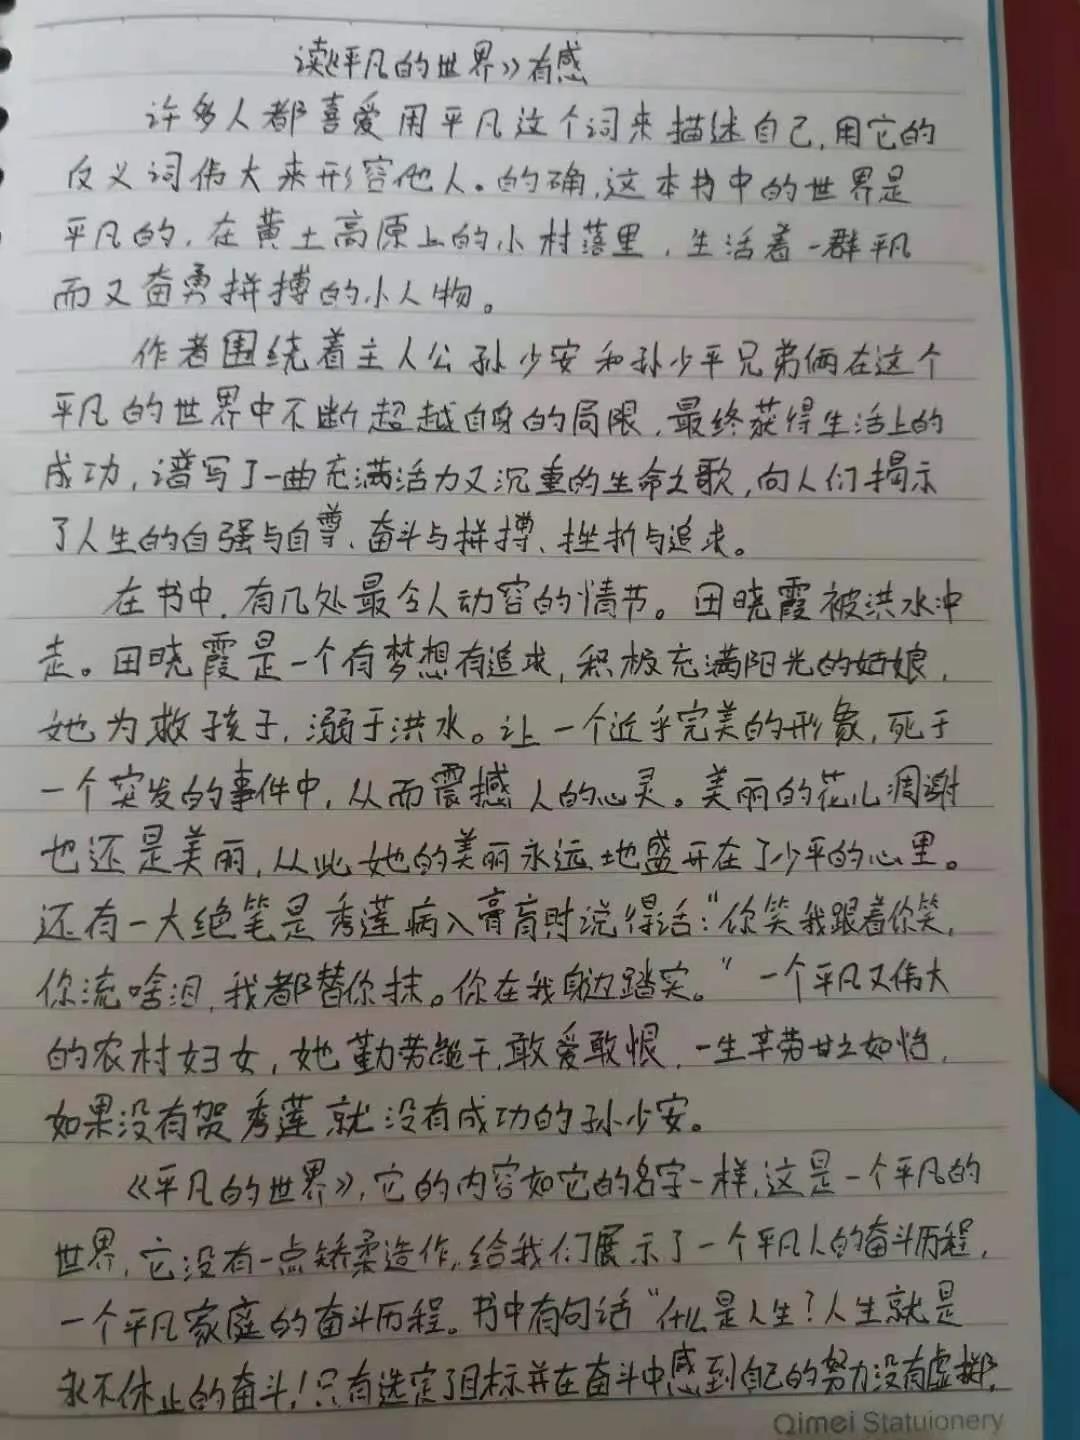 读《平凡的世界》有感
许多人都喜爱用平凡这个词来描述自己,用它的
反义词伟大来形容他人。的确,这本书中的世界是
平凡的,在黄土高原上的小村落里,生活着一群平凡
而又奋勇拼搏的小人物。
作者围绕着主人公孙少安和孙少平兄弟俩在这个
平凡的世界中不断超越自身的局限,最终获得生活上的
成功,谱写了一曲充满活力又沉重的生命之歌,向人们揭示
了人生的自强与自尊、奋斗与拼搏、挫折与追求。
在书中,有几处最令人动容的情节。田晓霞被洪水冲
走。田晓霞是一个有梦想有追求,积极充满阳光的姑娘,
她为救孩子,溺于洪水。让一个近乎完美的形象,死于
一个突发的事件中,从而震撼人的心灵。美丽的花儿凋谢
也还是美丽,从此她的美丽永远地盛开在了少平的心里。
还有一大绝笔是秀莲病入膏肓时说得话:"你笑我跟着你笑,
你流啥泪,我都替你抹。你在我身边踏实。" 一个平凡又伟大
的农村妇女,她勤劳能干,敢爱敢恨,一生辛劳甘之如怡,
如果没有贺秀莲就没有成功的孙少安。
《平凡的世界》,它的内容如它的名字一样,这是一个平凡的
世界,它没有一点矫柔造作,给我们展示了一个平凡人的奋斗历程,
一个平凡家庭的奋斗历程。书中有句话"什么是人生?人生就是
永不休止的奋斗!只有选定了目标并在奋斗中感到自己的努力没有虚掷,
Qimei Statuionery